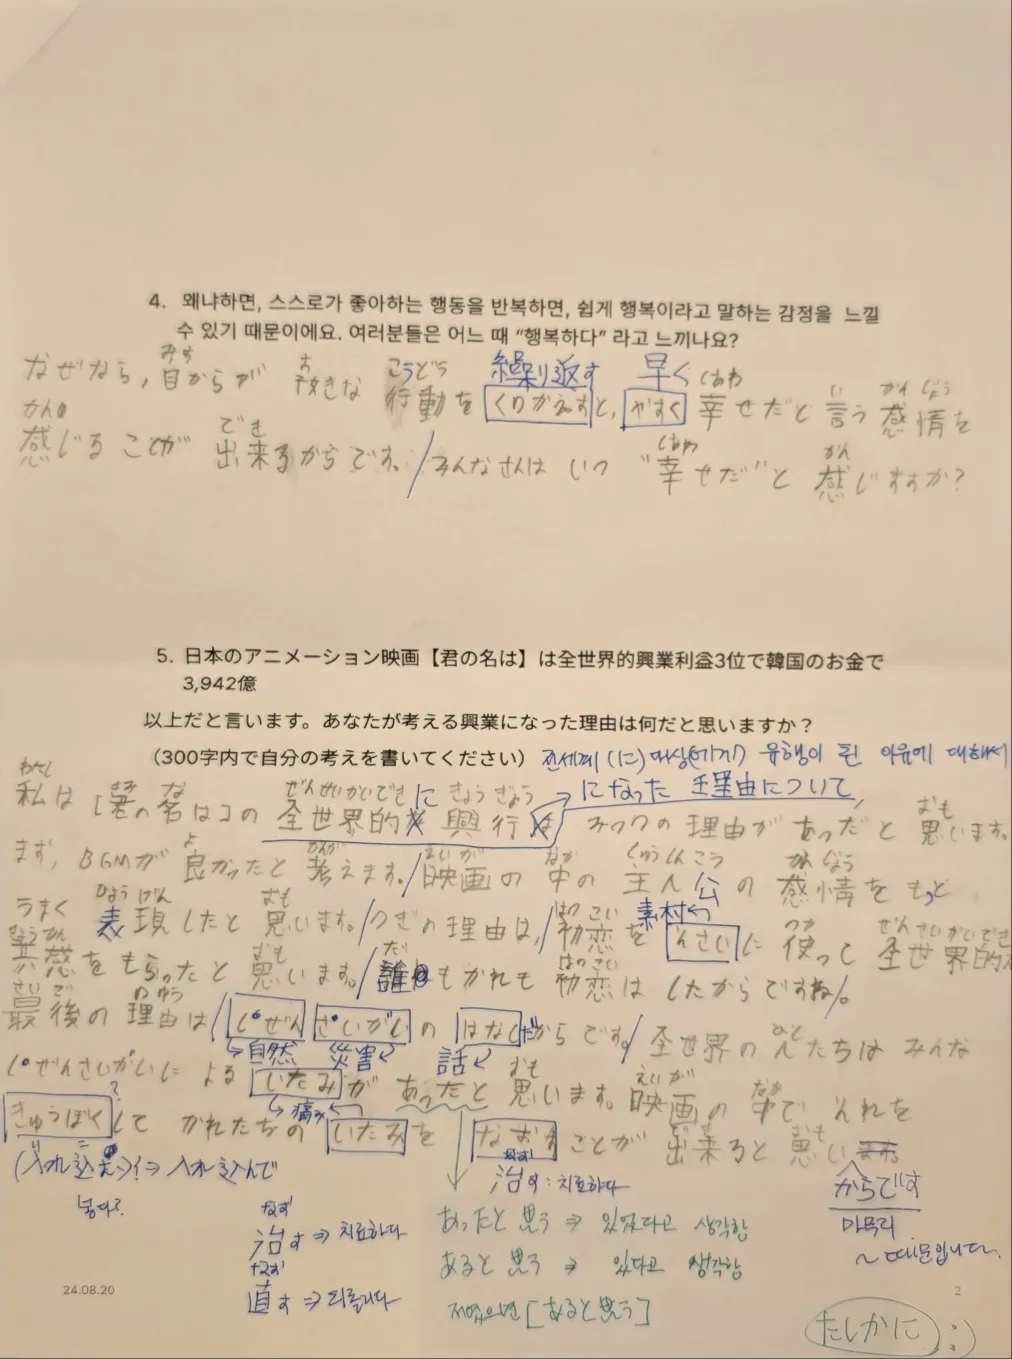 4. 왜냐하면, 스스로가 좋아하는 행동을 반복하면, 쉽게 행복이라고 말하는 감정을 느낄
수 있기 때문이에요. 여러분들은 어느 때 “행복하다” 라고 느끼나요?
みず お こうどう 繰り返す 早く しあわ い かんじょう
なぜなら, 自からが 好きな 行動を くりかえすと, やすく 幸せだと 言う 感情を
かん でき しあわ かん
感じることが 出来るからです。/みんなさんは いつ “幸せだ”と 感じますか?
5. 日本のアニメーション映画【君の名は】は全世界的興業利益3位で韓国のお金で
3,942億
以上だと言います。あなたが考える興業になった理由は何だと思いますか?
(300字内で自分の考えを書いてください) 전세계 (に) 대상 유행이 된 이유에 대해서
わたし な ぜんせかいてき に きょうぎょう → になった 理由について
私は [君の名は]の 全世界的 興行 みっつの 理由が あっだと 思います。
おも
よ かんが えいが なか しゅじんこう かんじょう
まず, BGMが 良かったと 考えます。/映画の 中の 主人公の 感情を もっと
ひょうげん おも はつこい 素材 つか
うまく 表現したと 思います。/つぎの 理由は,/初恋を んさいに 使って 全世界的な
おも だ はつこい
共感をもらったと 思います。/誰もかれも 初恋は したからですね/。
さいご りゆう ひと
最後の 理由は/しぜん さいがいの はなしだからです。/全世界の 人たちは みんな
自然 災害 話 おも えいが なか
しぜんさいがいに よる いたみが あったと 思います。映画の 中で, それを
?
痛み
きゅうぼくして かれたちの いたみを なおす ことが 出来ると 思い
なおす おも
(入れ込む)? ⇒ 入れ込んで 治す : 치료하다 からです
넣다? 마무리
~때문입니다.
なお
治す ⇒ 치료하다 あったと 思う ⇒ 있었다고 생각함
なお
直す ⇒ 되돌리다 あると 思う ⇒ 있다고 생각함
24.08.20 2
[あると思う]
たしかに :)